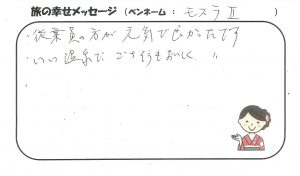 旅の幸せメッセージ（ペンネーム：モスラⅡ）
・従業員の方が元気で良かったです
・いい温泉でごちそうもおいしく 〃